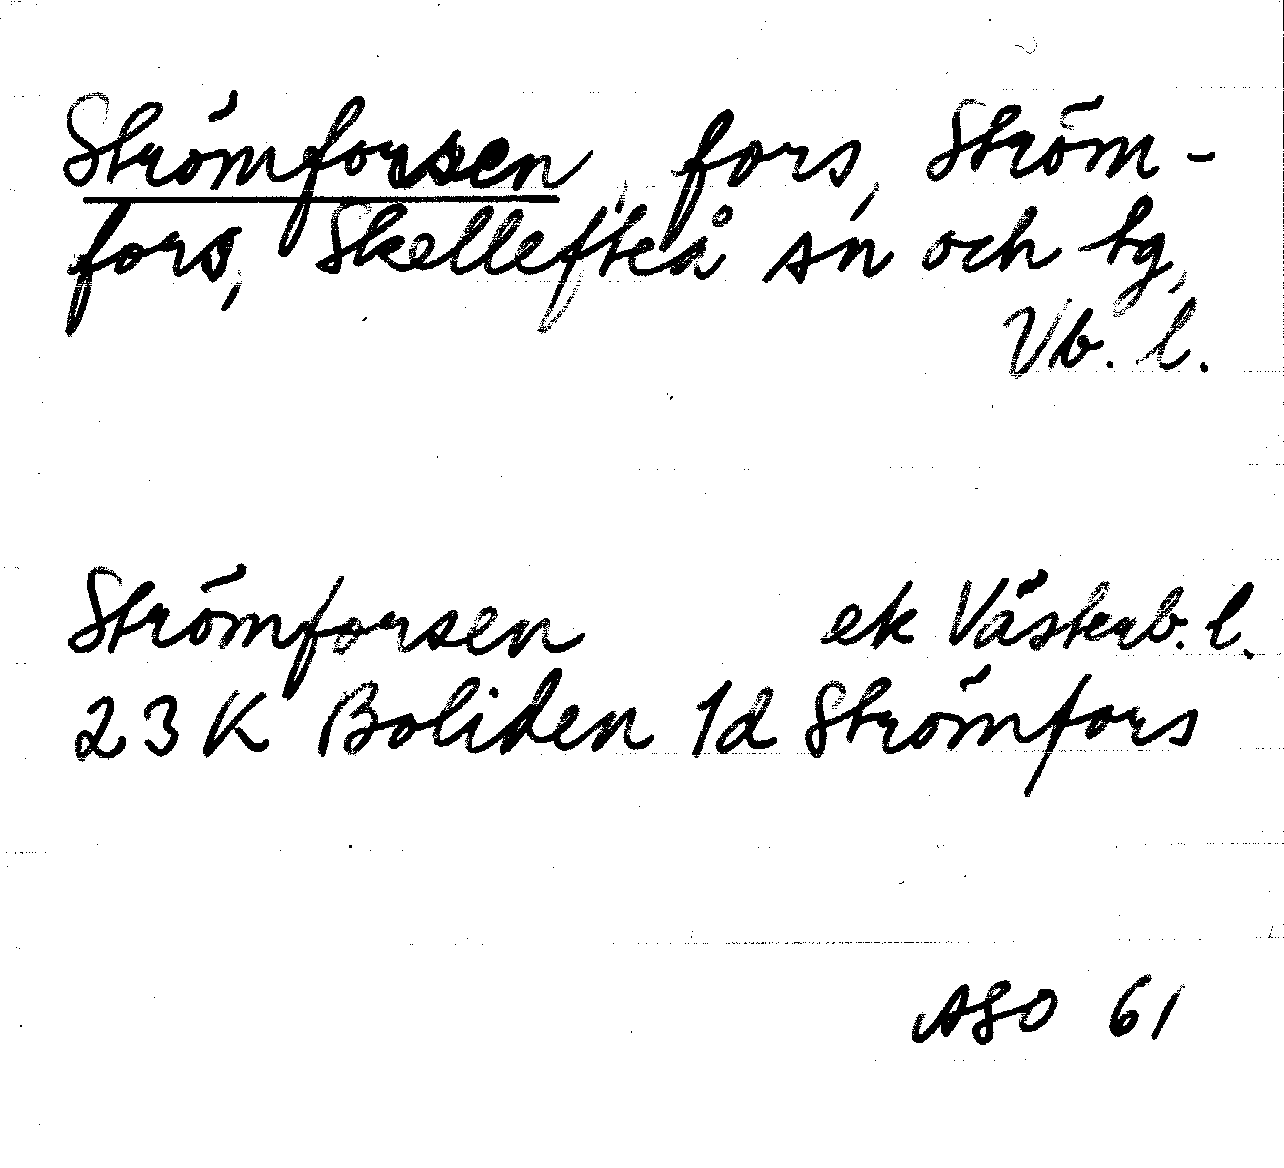 Strömforsen, fors, Ström-
fors, Skellefteå sn och tg,
Vb. l.
Strömforsen ek Västerb. l.
23 K Boliden 1d Strömfors
ASO 61